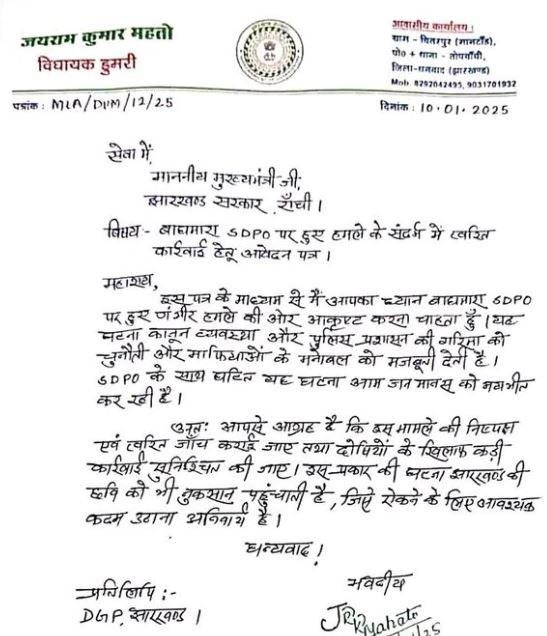 जयराम कुमार महतो
विधायक डुमरी
आवासीय कार्यालय :
ग्राम - चितरपुर (मानटाँड़),
पो० + थाना - तोपचाँची,
जिला-धनबाद (झारखण्ड)
Mob. 8292042495, 9031701932
पत्रांक : MLA/DUM/12/25
दिनांक : 10.01.2025
सेवा में,
माननीय मुख्यमंत्री जी,
झारखण्ड सरकार राँची।
विषय :- बाघमारा SDPO पर हुए हमले के संदर्भ में त्वरित
कार्रवाई हेतू आवेदन पत्र।
महाशय,
इस पत्र के माध्यम से मैं आपका ध्यान बाघमारा SDPO
पर हुए गंभीर हमले की ओर आकृष्ट करना चाहता हूँ। यह
घटना कानून व्यवस्था और पुलिस प्रशासन की गरिमा को
चुनौती और माफियाओं के मनोबल को मजबूती देती है।
SDPO के साथ घटित यह घटना आम जन मानस को भयभीत
कर रही है।
अतः आपसे आग्रह है कि इस मामले की निष्पक्ष
एवं त्वरित जाँच कराई जाए तथा दोषियों के खिलाफ कड़ी
कार्रवाई सुनिश्चित की जाए। इस प्रकार की घटना झारखण्ड की
छवि को भी नुकसान पहुंचाती है, जिसे रोकने के लिए आवश्यक
कदम उठाना अनिवार्य है।
धन्यवाद!
प्रतिलिपि :-
DGP, झारखण्ड।
भवदीय
JRKMahato